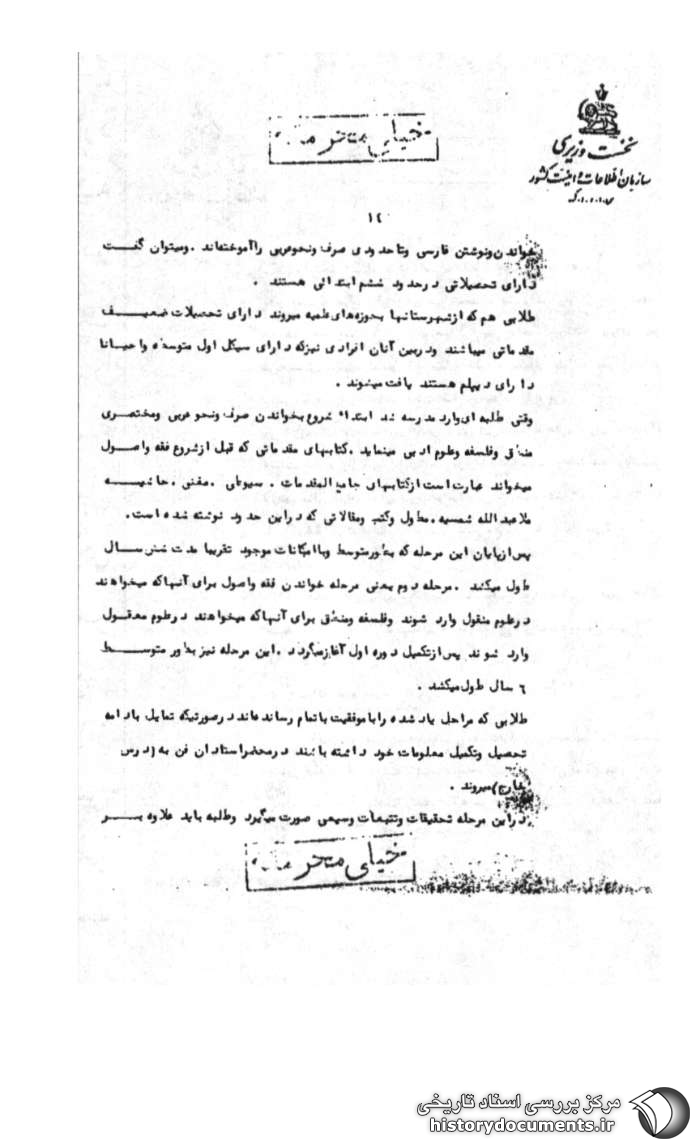 خیلی محرمانه
نخست وزیری
سازمان اطلاعات و امنیت کشور
س.ا.و.ا.ک
۱۴
خواندن ونوشتن فارسی وتاحدودی صرف ونحوعربی راآموخته‌اند . ومیتوان گفت
دارای تحصیلاتی درحدود ششم ابتدائی هستند .
طلابی هم که ازشهرستانها بحوزه‌های علمیه میروند دارای تحصیلات ضعیف
مقدماتی میباشند ودربین آنان افرادی نیزکه دارای سیکل اول متوسطه واحیانا
دارای دیپلم هستند یافت میشوند .
وقتی طلبه ای وارد مدرسه شد ابتداء شروع بخواندن صرف ونحو عربی ومختصری
منطق وفلسفه وعلوم ادبی مینماید . کتابهای مقدماتی که قبل ازشروع فقه واصول
میخواند عبارت است ازکتابهای جامع المقدمات . سیوطی . مغنی . حاشیه
ملاعبدالله شمسیه . مطول وکتب ومقالاتی که دراین حدود نوشته شده است .
پس ازپایان این مرحله که بطورمتوسط وباامکانات موجود تقریبا مدت شش سال
طول میکشد . مرحله دوم یعنی مرحله خواندن فقه واصول برای آنهاکه میخواهند
درعلوم منقول وارد شوند وفلسفه ومنطق برای آنهاکه میخواهند درعلوم معقول
وارد شوند پس ازتکمیل دوره اول آغازمیگردد . این مرحله نیز بطور متوسط
۶ سال طول میکشد .
طلابی که مراحل یاد شده را باموفقیت باتمام رسانده‌اند درصورتیکه تمایل بادامه
تحصیل وتکمیل معلومات خود داشته باشند درمحضراستادان فن به (درس
خارج) میروند .
دراین مرحله تحقیقات وتتبعات وسیعی صورت میگیرد وطلبه باید علاوه بر
خیلی محرمانه
مرکز بررسی اسناد تاریخی
historydocuments.ir